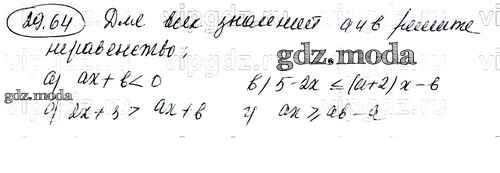 29.64 Для всех значений a и в решите
неравенство:
gdz.moda
а) ax + в < 0 в) 5-2x ≤ (a+2)x - в
gdz.moda
б) 2x + 3 > ax + в г) ax ≥ aв - a